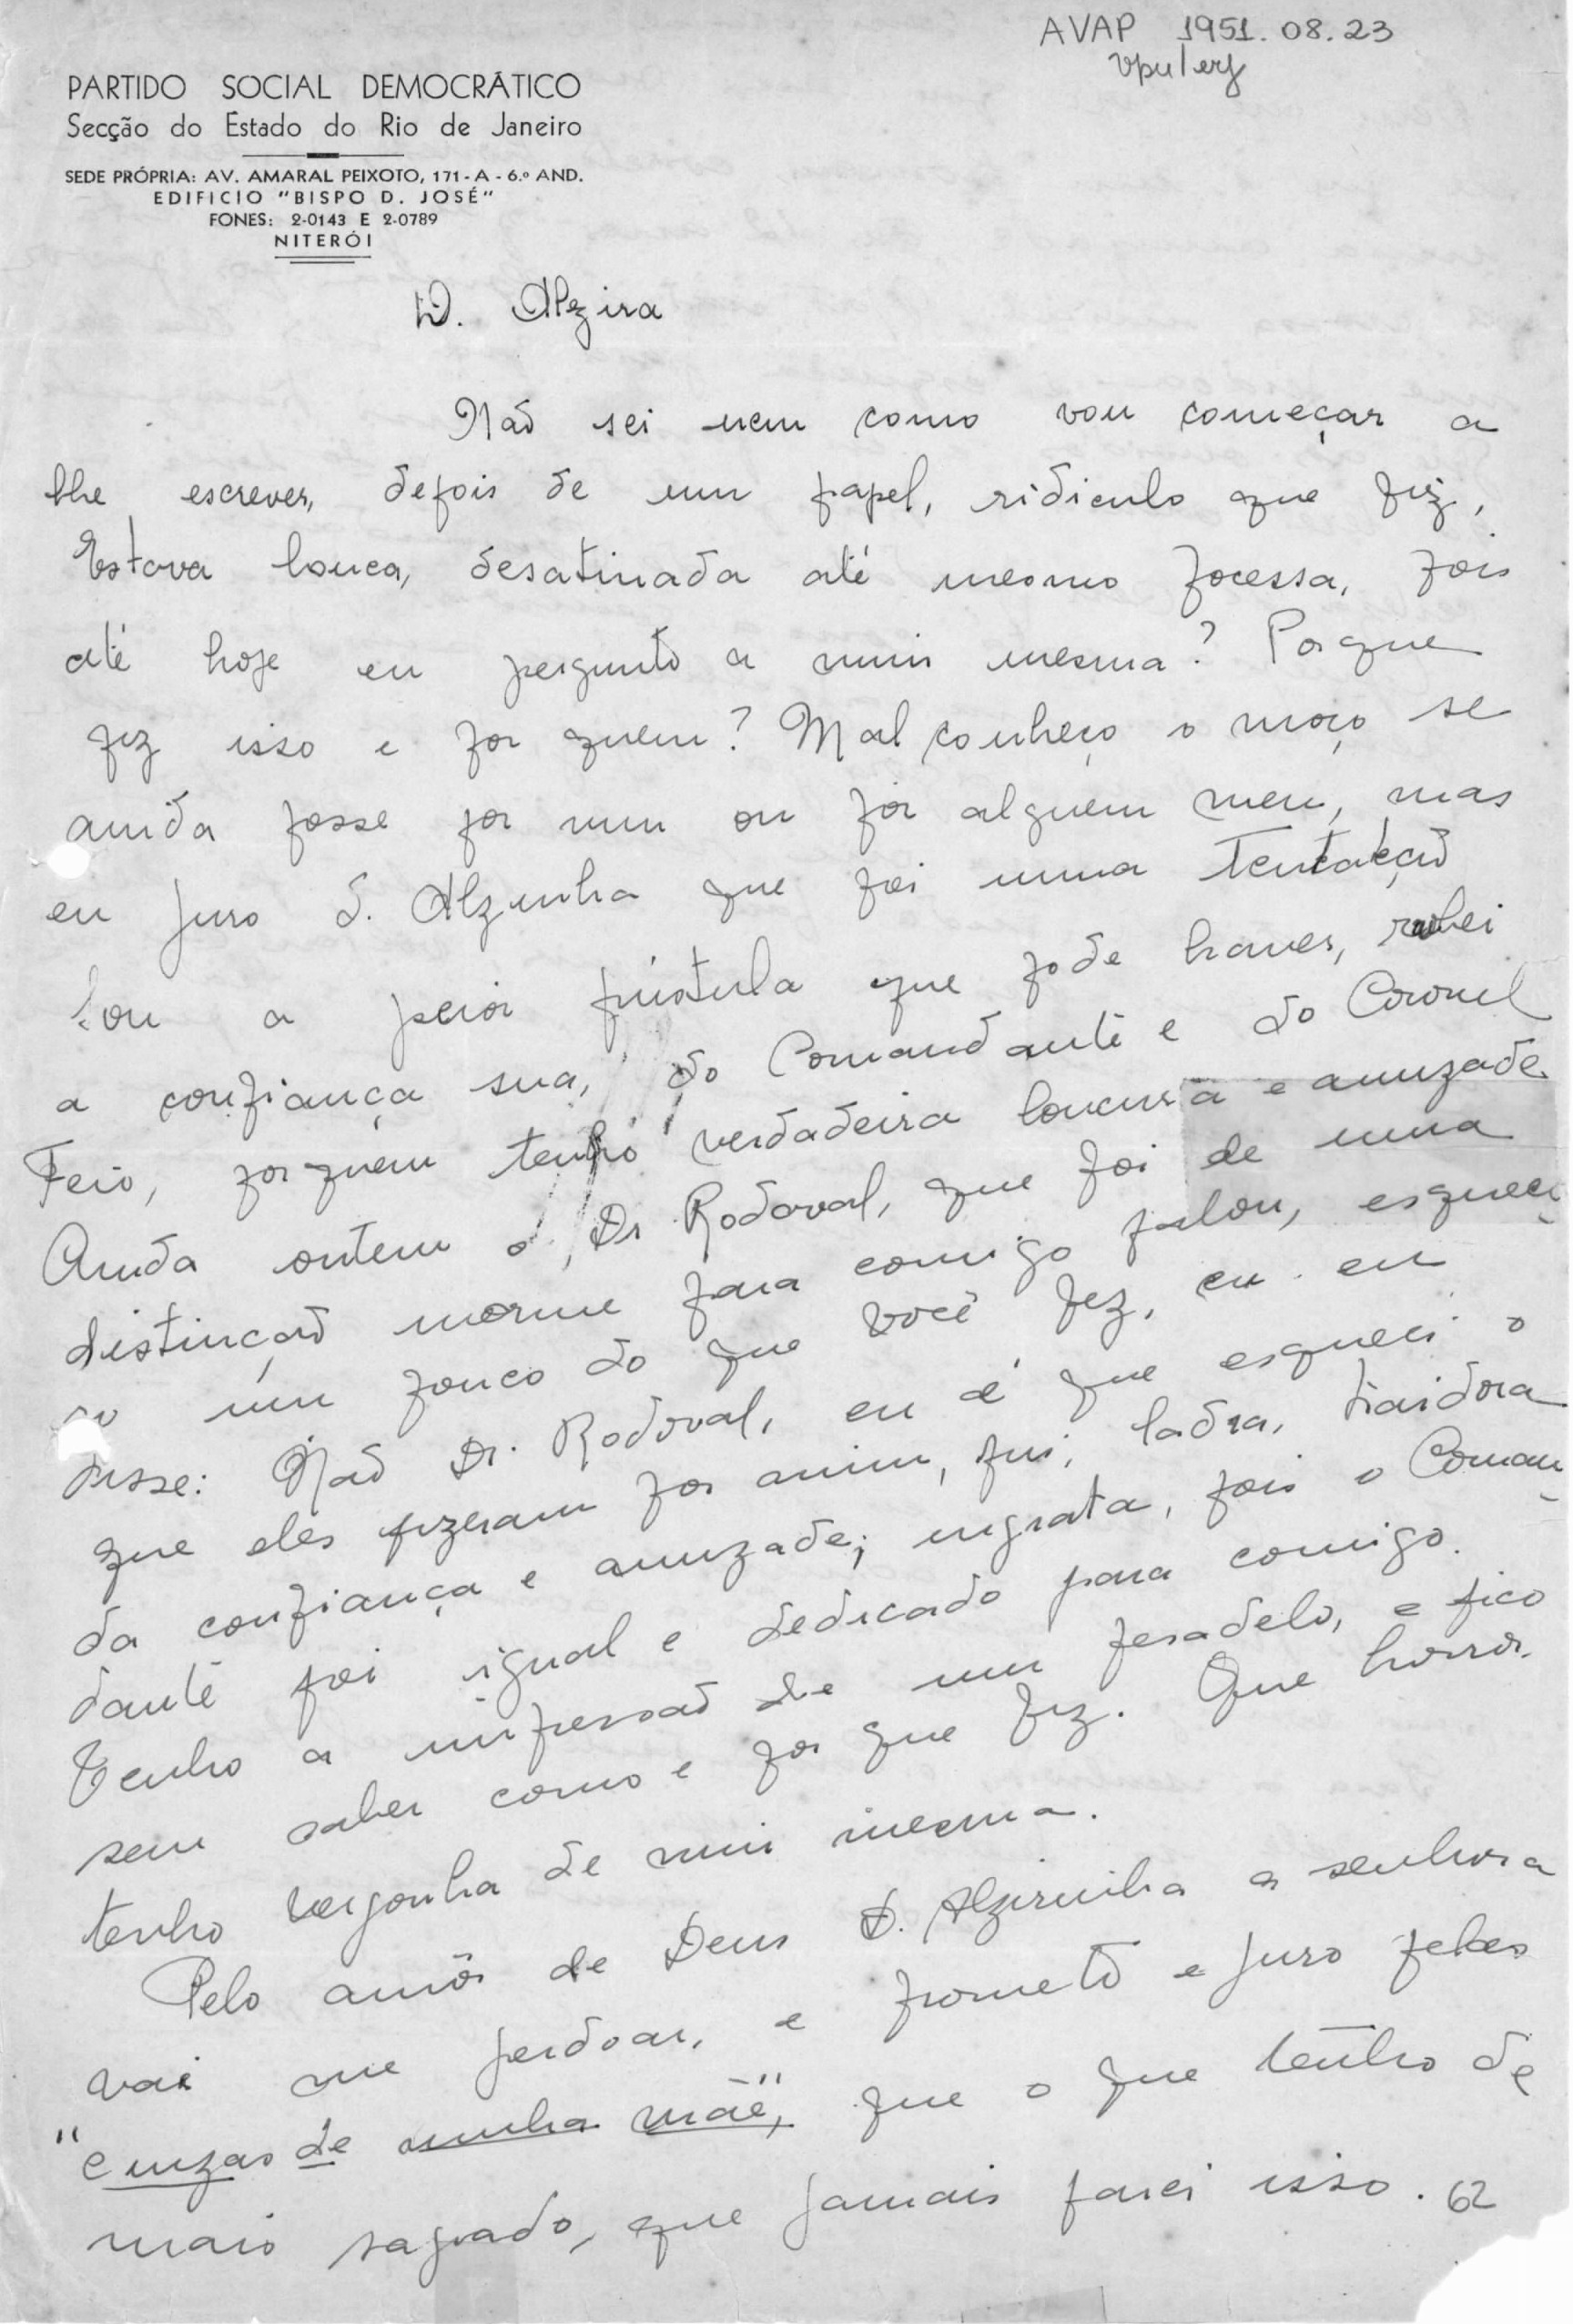 AVAP 1951.08.23
vpu/erj
PARTIDO SOCIAL DEMOCRÁTICO
Secção do Estado do Rio de Janeiro
SEDE PRÓPRIA: AV. AMARAL PEIXOTO, 171-A - 6.º AND.
EDIFICIO "BISPO D. JOSÉ"
FONES: 2-0143 E 2-0789
NITERÓI
D. Alzira
Não sei nem como vou começar a
lhe escrever, depois de um papel, ridiculo que fiz,
Estava louca, desatinada até mesmo pocessa, pois
até hoje eu pergunto a mim mesma? Porque
fiz isso e por quem? Mal conheço o moço se
ainda fosse por mim ou por alguem meu, mas
eu juro d. Alzinha que foi uma
Sou a peior pústula que pode haver, roubei
a confiança sua, do Comandante e do Coronel
Feio, por quem tenho verdadeira loucura e amizade.
Ainda ontem o, Dr Rodoval, que foi de uma
distinção enorme para comigo falou, esqueç
o um pouco do que você fez, eu en
disse: Não Dr. Rodoval, eu é que esqueci o
que eles fizeram por mim, fui, ladra, traidora
da confiança e amizade; ingrata, pois o Coman
dante foi igual e dedicado para comigo.
Tenho a impressão de um pesadelo, e fico
sem saber como e por que fiz. Que horror.
tenho vergonha de mim mesma.
Pelo amôr de Deus D. Alzirinha a senhora
vai me perdoar, e prometo e juro pelas
"cinzas de minha mãe", que o que tenho de
mais sagrado, que jamais farei isso. 62